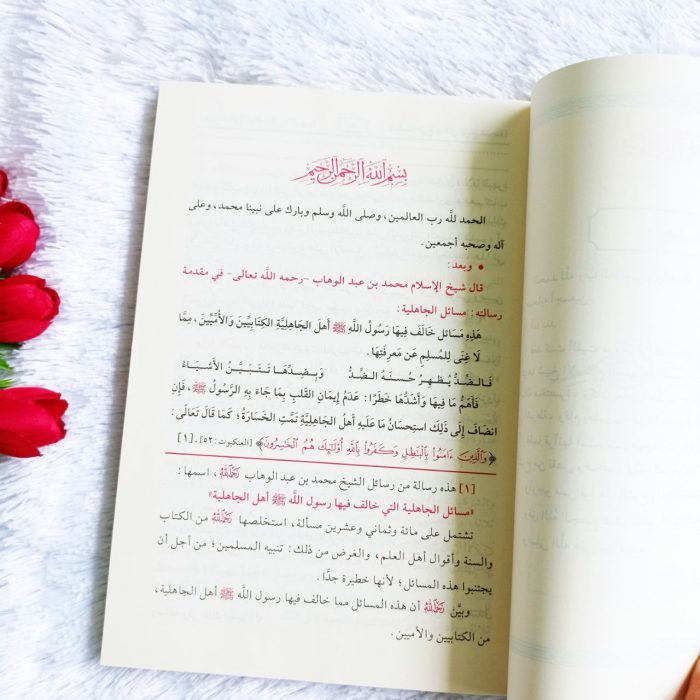 بِسْمِ اللَّهِ الرَّحْمَٰنِ الرَّحِيمِ
الحمد للَّه رب العالمين، وصلى اللَّه وسلم وبارك على نبينا محمد، وعلى
آله وصحبه أجمعين.
• وبعد:
قال شيخ الإسلام محمد بن عبد الوهاب -رحمه اللَّه تعالى- في مقدمة
رسالته: مسائل الجاهلية:
هَذِهِ مَسَائل خَالَفَ فِيهَا رَسُولُ اللَّهِ ﷺ أَهلَ الجَاهِلِيَّةِ الكِتَابِيِّينَ وَالأُمِّيِّينَ، مِمَّا
لَا غِنَى لِلمُسلِمِ عَن مَعرِفَتِهَا.
فَالضِّدُّ يُظهِرُ حُسنَهُ الضِّدُّ وَبِضِدِّهَا تَتَبَيَّنُ الأَشيَاءُ
فَأَهَمُّ مَا فِيهَا وَأَشَدُّهَا خَطَرًا: عَدَمُ إِيمَانِ القَلبِ بِمَا جَاءَ بِهِ الرَّسُولُ ﷺ، فَإِن
انضَافَ إِلَى ذَلِكَ استِحسَانُ مَا عَلَيهِ أَهلُ الجَاهِلِيَّةِ تَمَّتِ الخَسَارَةُ؛ كَمَا قَالَ تَعَالَى:
﴿وَالَّذِينَ ءَامَنُوا بِالْبَاطِلِ وَكَفَرُوا بِاللَّهِ أُولَٰئِكَ هُمُ الْخَاسِرُونَ﴾ [العنكبوت: ٥٢]. [١]
[١] هذه رسالة من رسائل الشيخ محمد بن عبد الوهاب رَحِمَهُ اللَّهُ، اسمها:
«مسائل الجاهلية التي خالف فيها رسول اللَّه ﷺ أهل الجاهلية»
تشتمل على مائة وثماني وعشرين مسألة، استخلصها رَحِمَهُ اللَّهُ من الكتاب
والسنة وأقوال أهل العلم، والغرض من ذلك: تنبيه المسلمين؛ من أجل أن
يجتنبوا هذه المسائل؛ لأنها خطيرة جدًّا.
وبيَّن رَحِمَهُ اللَّهُ أن هذه المسائل مما خالف فيها رسول اللَّه ﷺ أهل الجاهلية،
من الكتابيين والأميين.